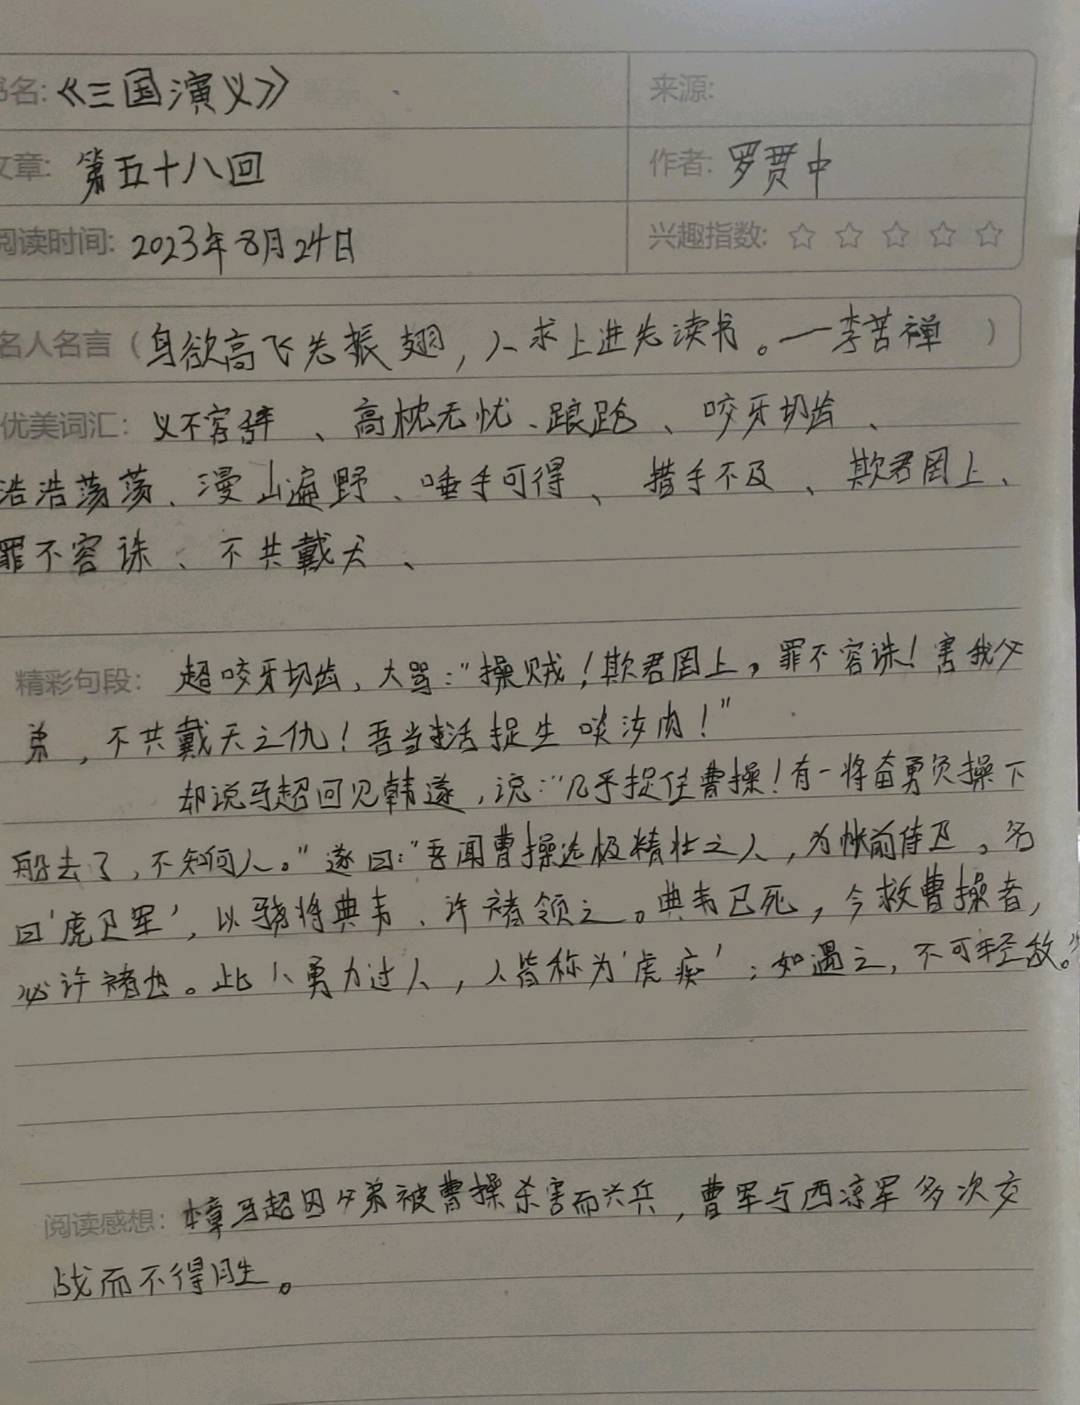 书名:《三国演义》 来源:
文章: 第五十八回 作者: 罗贯中
阅读时间: 2023年8月24日 兴趣指数: ☆ ☆ ☆ ☆ ☆
名人名言（鸟欲高飞先振翅，人求上进先读书。—李苦禅 ）
优美词汇: 义不容辞、高枕无忧、踉跄、咬牙切齿、
浩浩荡荡、漫山遍野、唾手可得、措手不及、欺君罔上、
罪不容诛、不共戴天、
精彩句段: 超咬牙切齿，大骂:“操贼！欺君罔上，罪不容诛！害我父
弟，不共戴天之仇！吾当活捉生啖汝肉！”
却说马超回见韩遂，说:“几乎捉住曹操！有一将奋勇负操下
船去了，不知何人。”遂曰:“吾闻曹操选极精壮之人，为帐前侍卫，名
曰‘虎卫军’，以骁将典韦、许褚领之。典韦已死，今救曹操者，
必许褚也。此人勇力过人，人皆称为‘虎痴’；如遇之，不可轻敌。”
阅读感想: 马超因父弟被曹操杀害而兴兵，曹军与西凉军多次交
战而不得胜。